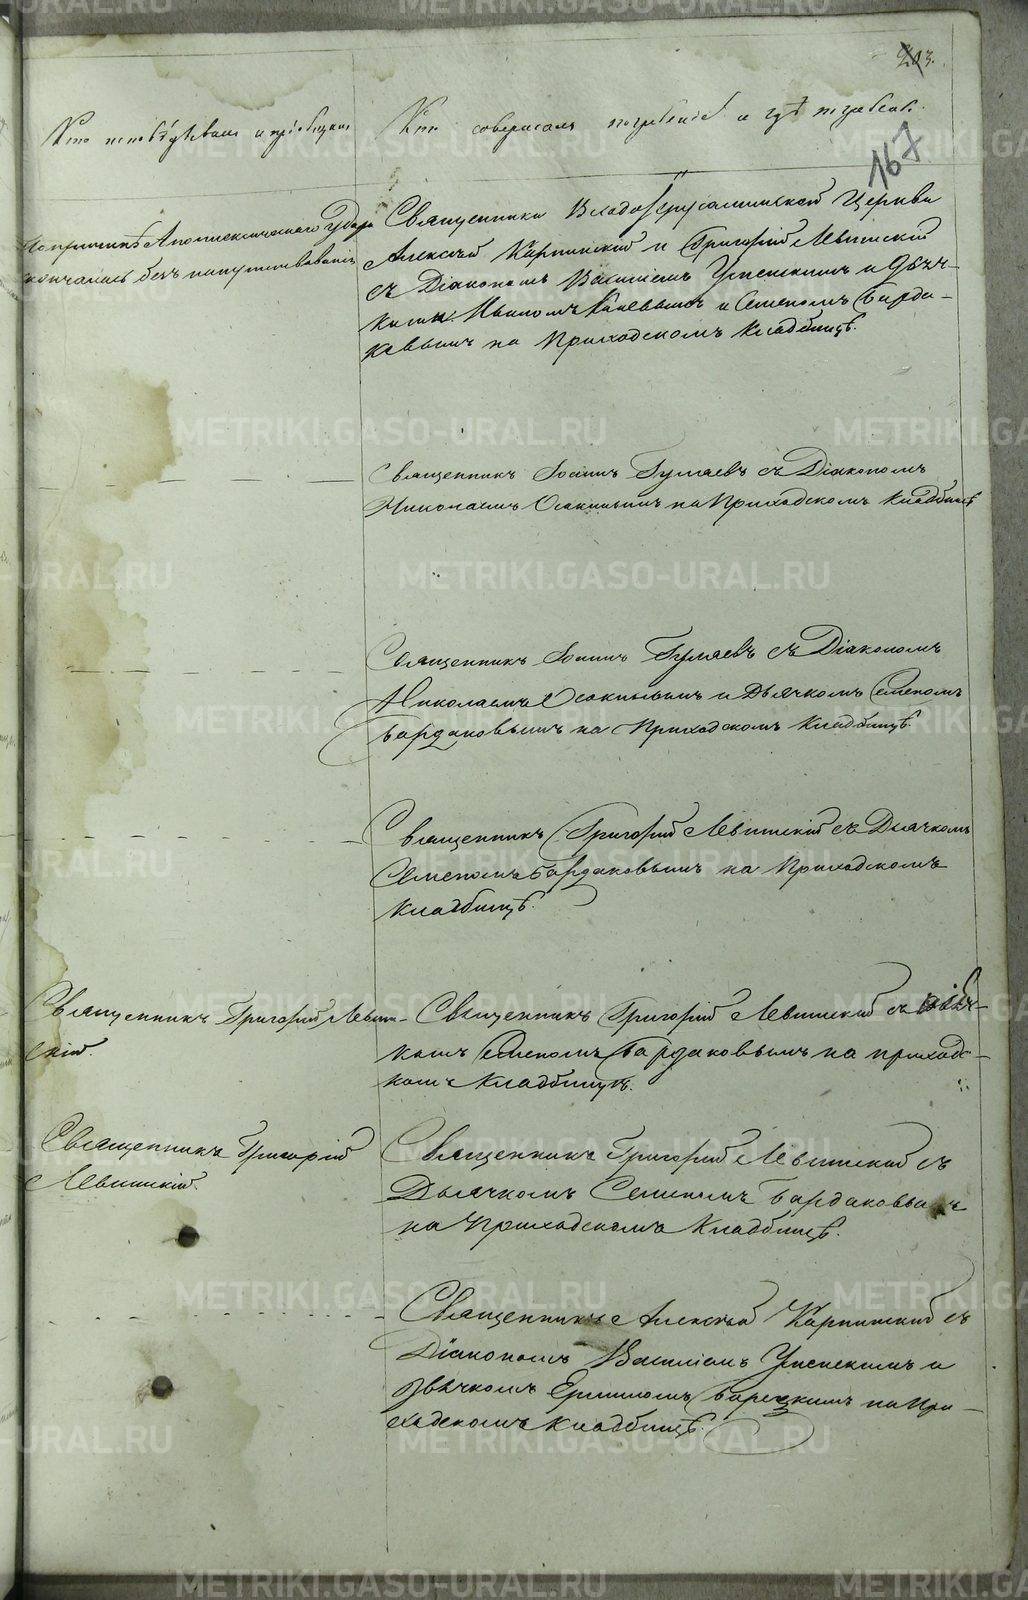 203.
167
Кто исповѣдывалъ и пріобщалъ
Кто совершалъ погребеніе и гдѣ погребенъ.
По причинѣ Апоплексическаго Удара
скончалась безъ напутствованія
Священники Входоіерусалимской Церкви
Алексѣй Карпинскій и Григорій Левитскій
съ Діакономъ Василіемъ Успенскимъ и дьяч-
ками Иваномъ и Семеномъ Барда-
ковымъ на Приходскомъ Кладбищѣ.
Священникъ Іоаннъ Гуляевъ съ Діакономъ
Николаемъ Осокинымъ на Приходскомъ Кладбищѣ
Священникъ Іоаннъ Гуляевъ съ Діакономъ
Николаемъ Осокинымъ и Дьячкомъ Семеномъ
Бардаковымъ на Приходскомъ Кладбищѣ.
Священникъ Григорій Левитскій съ Дьячкомъ
Семеномъ Бардаковымъ на Приходскомъ
Кладбищѣ.
Священникъ Григорій Левит-
скій.
Священникъ Григорій Левитскій съ дьяч-
комъ Семеномъ Бардаковымъ на приход-
комъ Кладбищѣ.
Священникъ Григорій
Левитскій.
Священникъ Григорій Левитскій съ
Дьячкомъ Семеномъ Бардаковымъ
на Приходскомъ Кладбищѣ.
Священникъ Алексѣй Карпинскій съ
Діакономъ Василіемъ Успенскимъ и
дьячкомъ на При-
ходскомъ Кладбищѣ.
METRIKI.GASO-URAL.RU